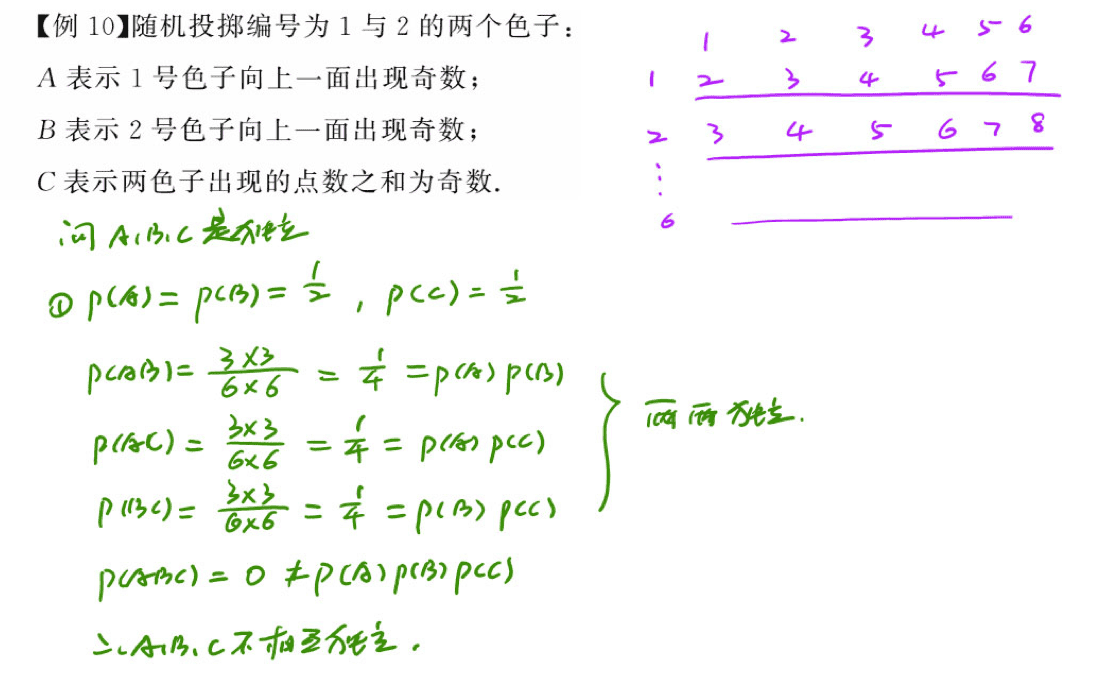 【例 10】随机投掷编号为 1 与 2 的两个色子：
A 表示 1 号色子向上一面出现奇数；
B 表示 2 号色子向上一面出现奇数；
C 表示两色子出现的点数之和为奇数.
1 2 3 4 5 6
1 2 3 4 5 6 7
2 3 4 5 6 7 8
⋮
6
问 A,B,C 是否独立
① P(A)=P(B)=1/2 , P(C)=1/2
P(AB)=3×3/6×6=1/4=P(A)P(B)
P(AC)=3×3/6×6=1/4=P(A)P(C)
P(BC)=3×3/6×6=1/4=P(B)P(C)
两两独立.
P(ABC)=0≠P(A)P(B)P(C)
∴A,B,C不相互独立.